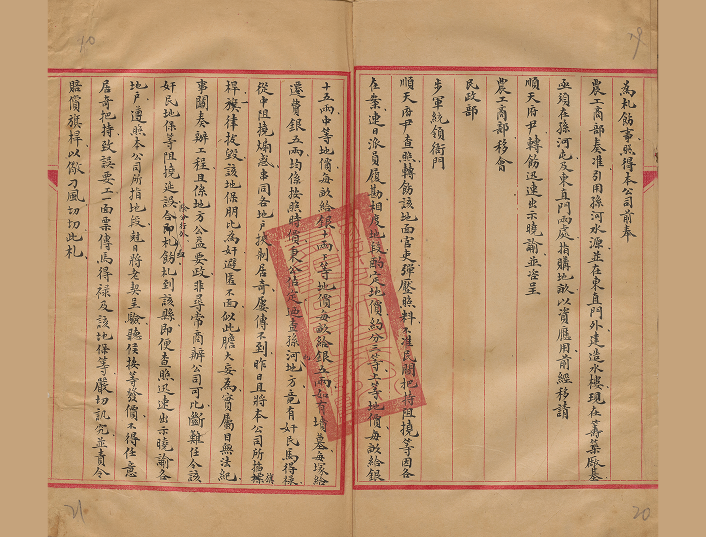 為札飭事照得本公司前奉
農工商部奏准引用孫河水源並在東直門外建造水樓現在籌築廠基
亟須在孫河屯及東直門兩處指購地畝以資應用前經移請
順天府尹轉飭迅速出示曉諭並咨呈
農工商部移會
民政部
步軍統領衙門
順天府尹查照轉飭該地面官吏彈壓照料不准民間把持阻撓等因各
在案連日派員履勘相度地段酌定地價約分三等上等地價每畝給銀
十五兩中等地價每畝給銀十兩下等地價每畝給銀五兩如有墳墓每塚給
遷費銀五兩均係按照時價秉公估定迺查孫河地方竟有奸民馬得祿
從中阻撓煽惑串同各地戶挾制居奇屢傳不到昨日且將本公司所插標旗
桿旗一律拔毀該地保朋比為奸避匿不面似此膽大妄為實屬目無法紀
事關奏辦工程且係地方公益要政非尋常商辦公司可比斷難任令該
奸民地保等阻撓延誤合即札飭札到該縣即便查照迅速出示曉諭各
地戶遵照本公司所指地段剋日將老契呈驗聽候按等發價不得任意
居奇把持致誤要工一面票傳馬得祿及該地保等嚴切訊究並責令
賠償旗桿以儆刁風切切此札
20
21